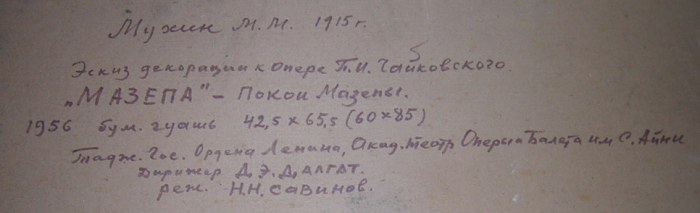 Мухин М.М. 1915 г.
Эскиз декорации к опере П.И. Чайковского
„МАЗЕПА" – Покои Мазепы.
1956 бум. гуашь 42,5 х 65,5 (60 х 85)
Тадж. Гос. Ордена Ленина, Акад. театр Оперы и Балета им С. Айни
Дирижер Д.Э. Далгат.
реж. Н.Н. Савинов.